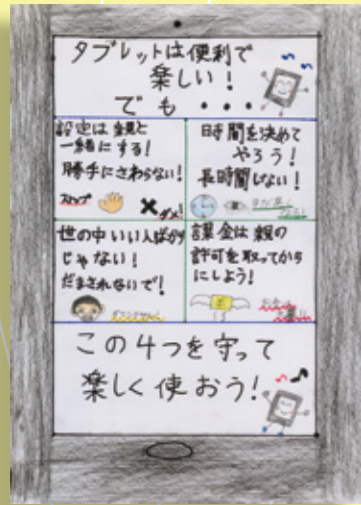 タブレットは便利で
楽しい！
でも・・・
設定は親と
一緒にする！
勝手にさわらない！
ストップ
ダメ！
時間を決めて
やろう！
長時間しない！
世の中いい人ばかり
じゃない！
だまされないで！
課金は親の
許可を取ってから
にしよう！
この4つを守って
楽しく使おう！